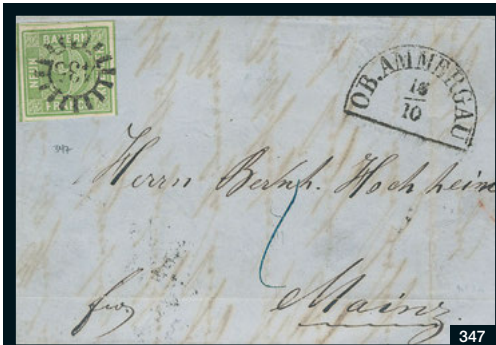 BAYERN
NEUN
OB. AMMERGAU
18
10
347
Herrn Bernh. Hochheim
Mainz
347